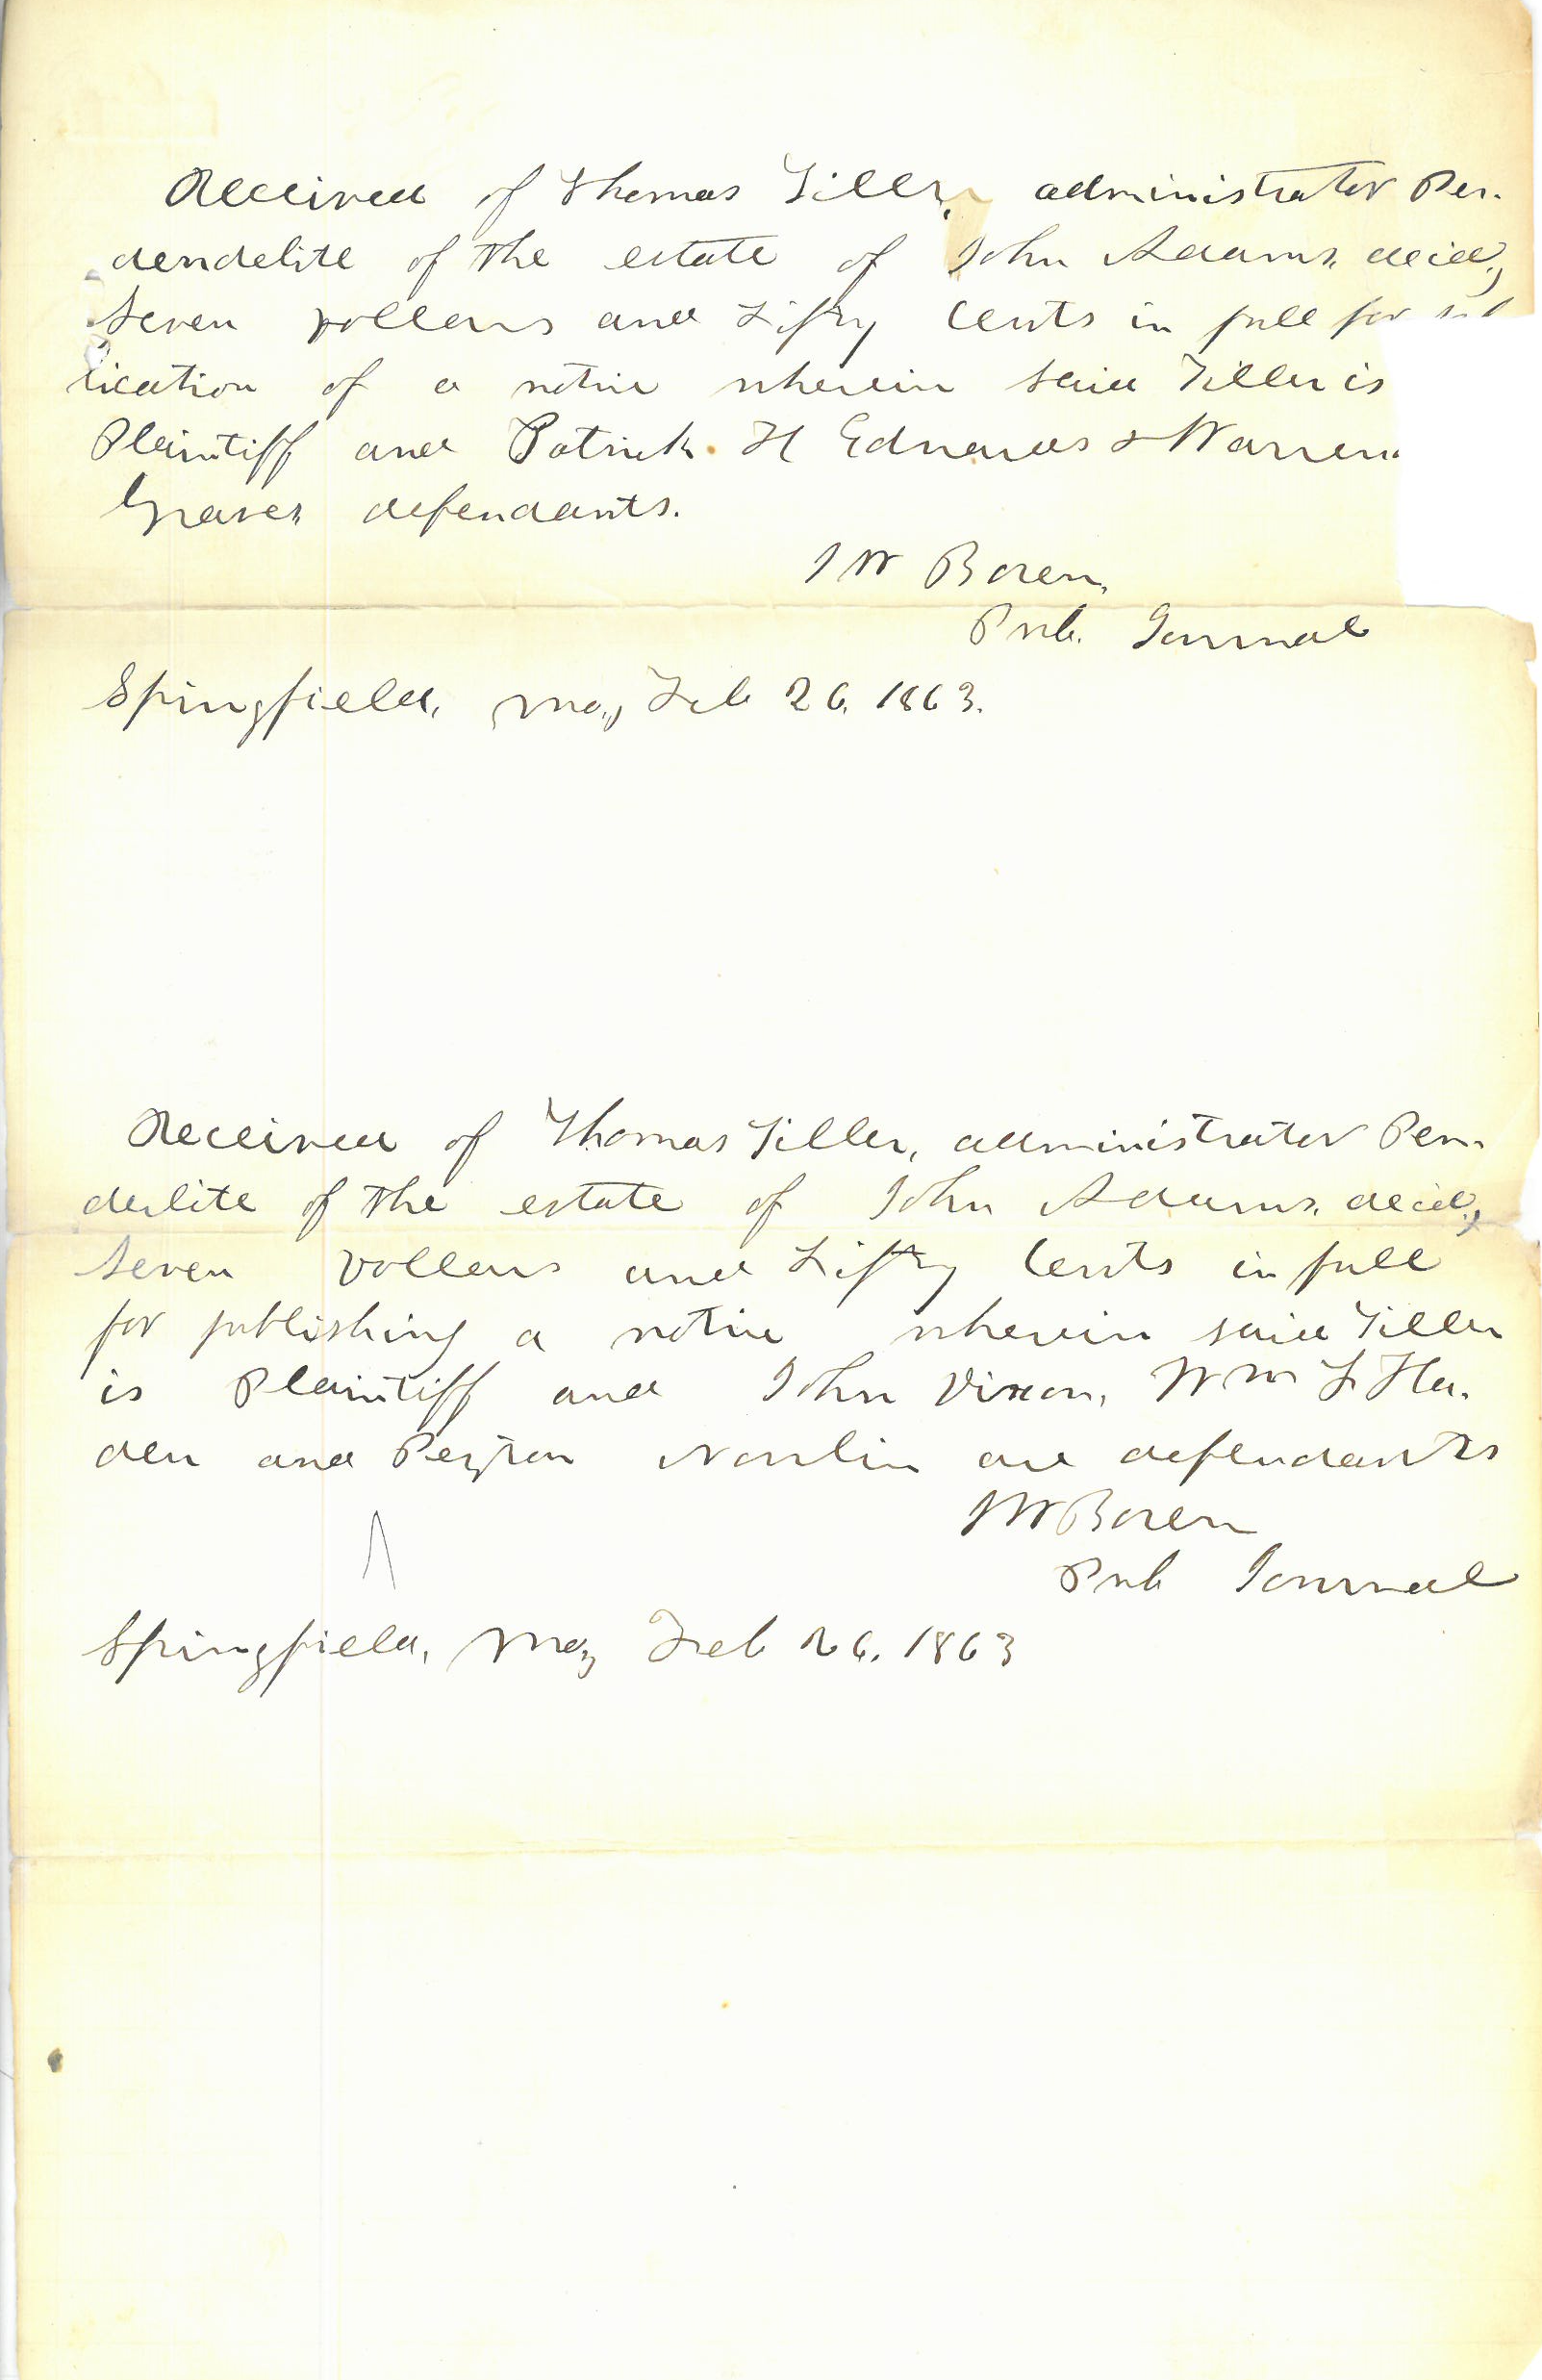 Received of Thomas Tiller, administrator Pen-
dendelite of the estate of John Adams, dec'd.,
Seven Dollars and Fifty Cents in full for pub
lication of a notice wherein said Tiller is
Plaintiff and Patrick H Edwards & Warren
Graves defendants.
J W Boren,
Pub. Journal
Springfield, Mo., Feb 26. 1863.
Received of Thomas Tiller, administrator Pen-
delite of the estate of John Adams, dec'd.,
Seven Dollars and Fifty Cents in full
for publishing a notice wherein said Tiller
is Plaintiff and John Dixon, Wm F Ha-
den and Peyton Nowlin are defendants
J W Boren
Pub Journal
Springfield, Mo, Feb 26. 1863